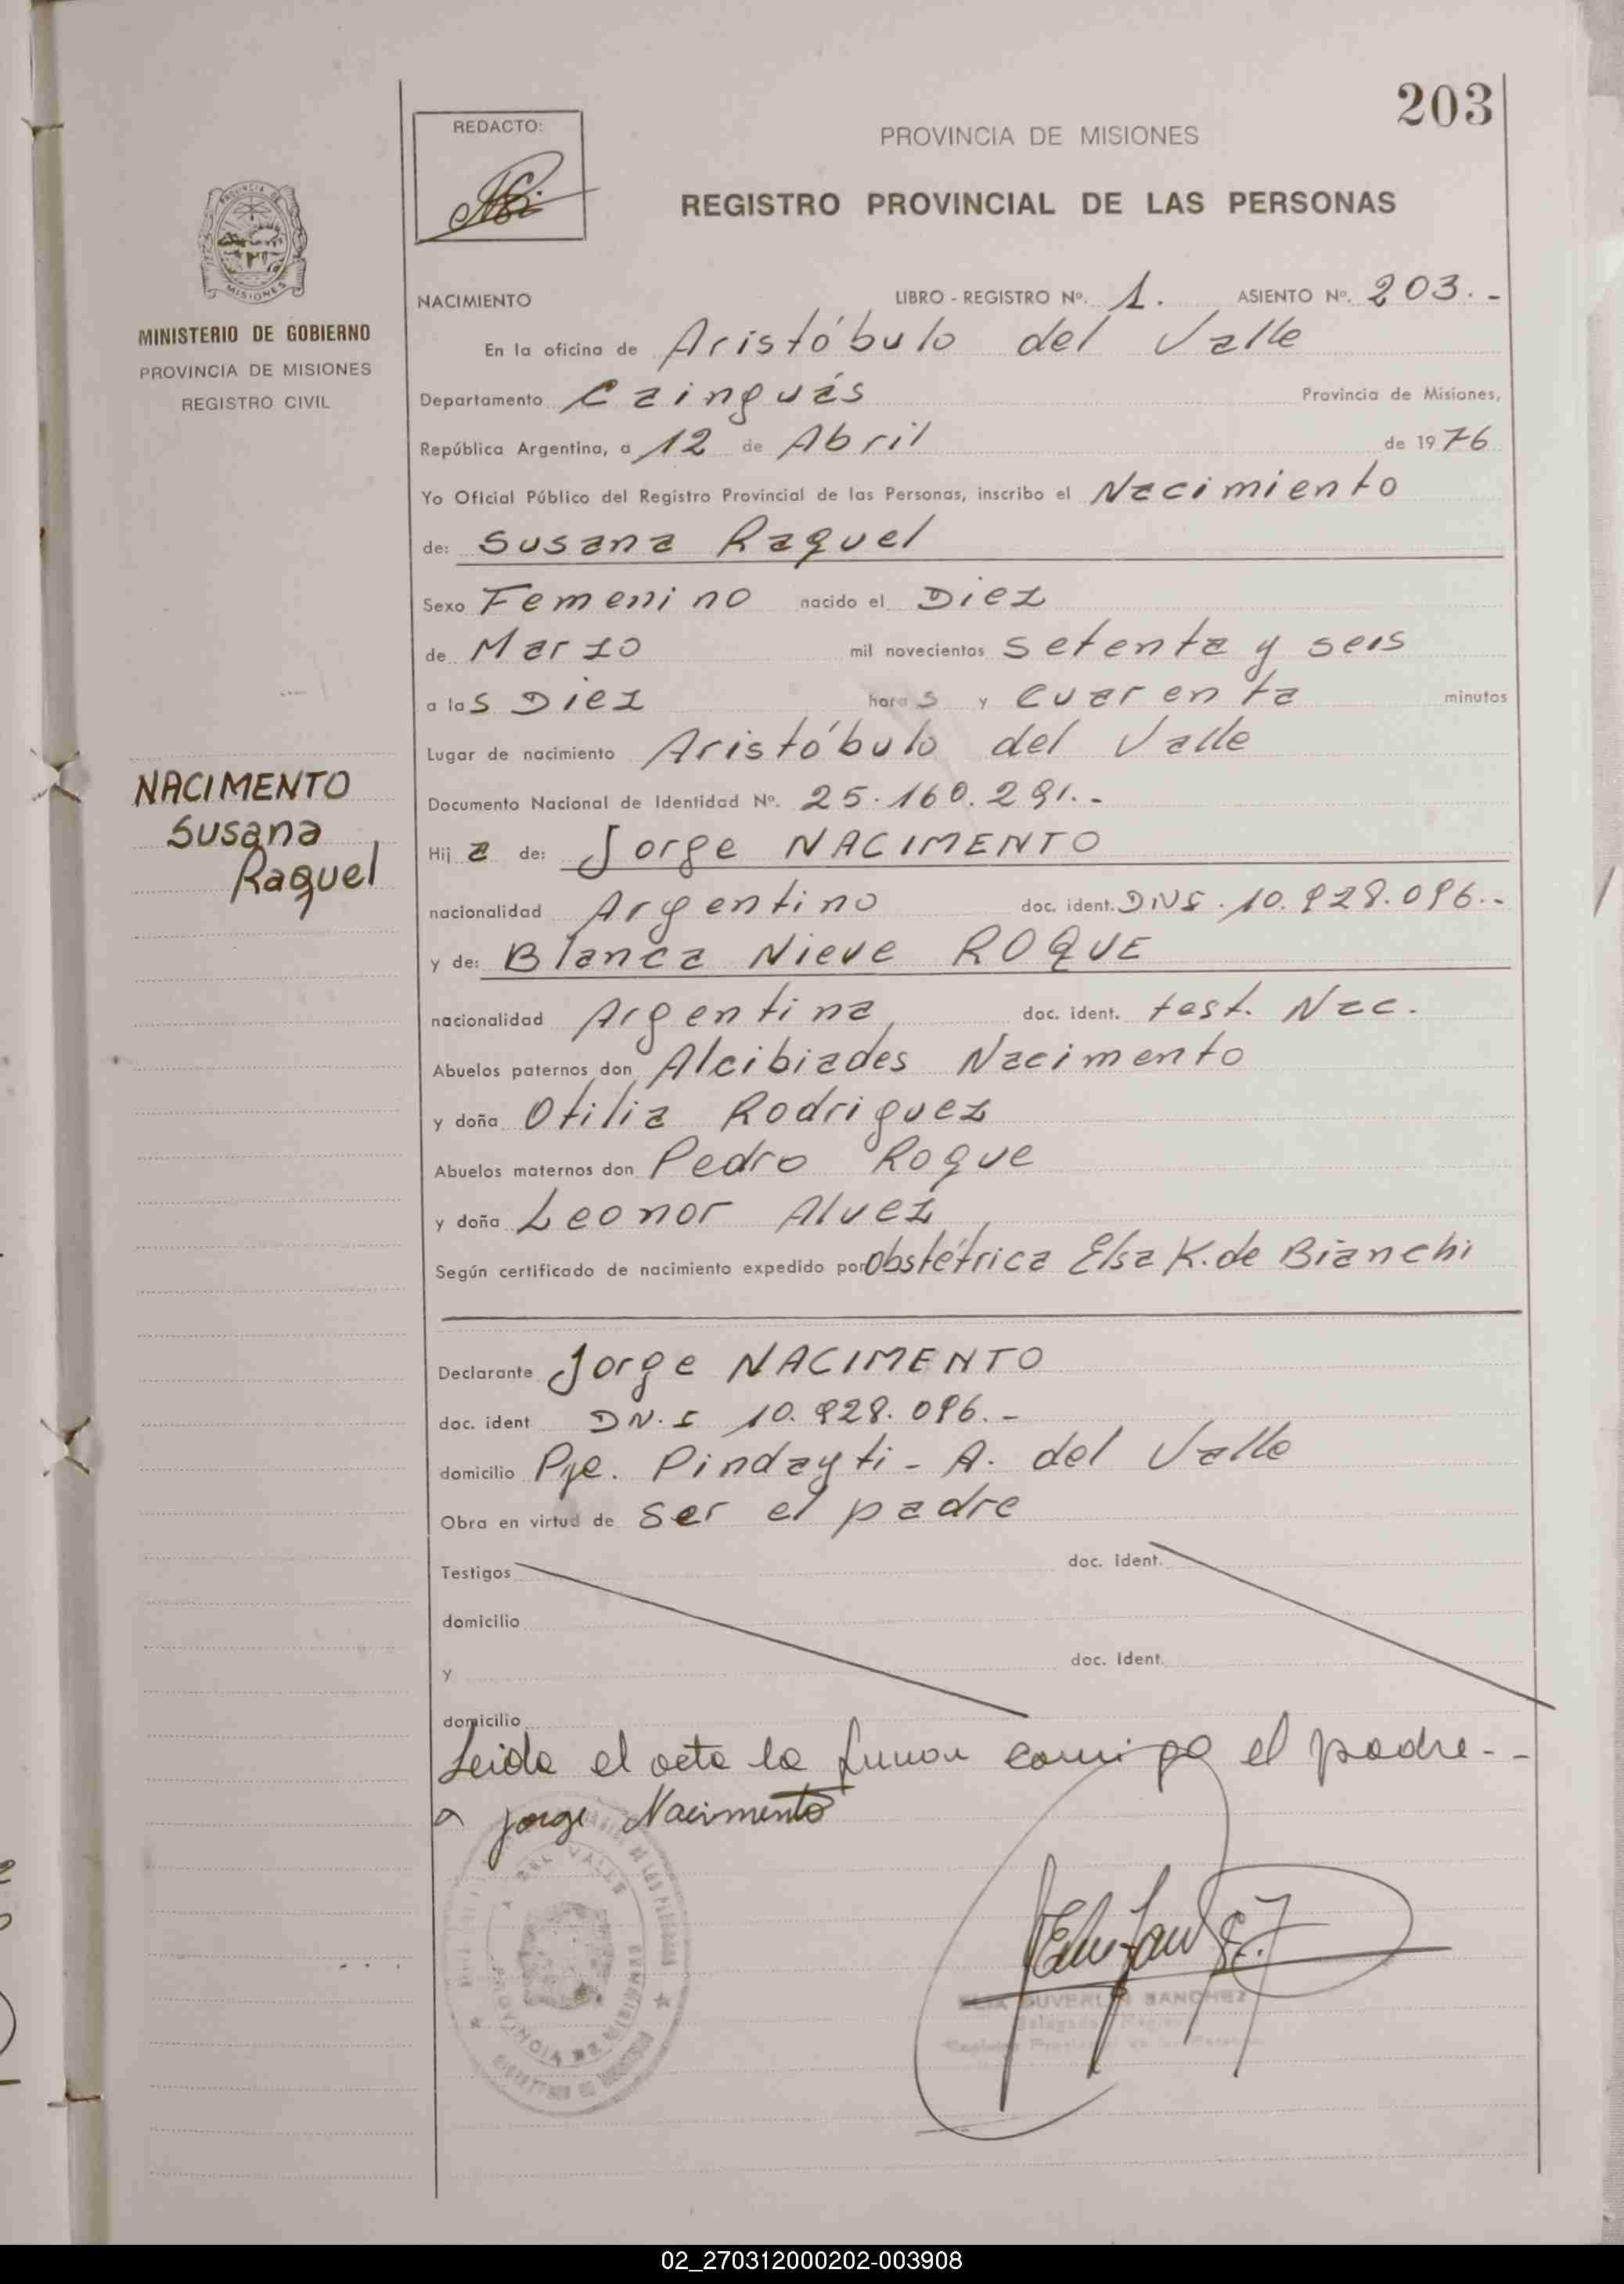 203
REDACTO:
PROVINCIA DE MISIONES
REGISTRO PROVINCIAL DE LAS PERSONAS
MISIONES
MINISTERIO DE GOBIERNO
PROVINCIA DE MISIONES
REGISTRO CIVIL
NACIMIENTO LIBRO - REGISTRO Nº. 1. ASIENTO Nº. 203.-
En la oficina de Aristóbulo del Valle
Departamento Cainguás Provincia de Misiones,
República Argentina, a 12 de Abril de 1976
Yo Oficial Público del Registro Provincial de las Personas, inscribo el Nacimiento
de: Susana Raquel
Sexo Femenino nacido el Diez
de Marzo mil novecientos setenta y seis
a las Diez horas y cuarenta minutos
Lugar de nacimiento Aristóbulo del Valle
NACIMENTO
Susana
Raquel
Documento Nacional de Identidad Nº. 25.160.291.-
Hija de: Jorge NACIMENTO
nacionalidad Argentino doc. ident. DNI. 10.928.096.-
y de: Blanca Nieve ROQUE
nacionalidad Argentina doc. ident. test. Nac.
Abuelos paternos don Alcibiades Nacimento
y doña Otilia Rodriguez
Abuelos maternos don Pedro Roque
y doña Leonor Alvez
Según certificado de nacimiento expedido por Obstétrica Elsa K. de Bianchi
Declarante Jorge NACIMENTO
doc. ident DN.I 10.928.096.-
domicilio Pje. Pindayti - A. del Valle
Obra en virtud de ser el padre
Testigos doc. ident.
domicilio
y doc. Ident.
domicilio
Leida el acta la firman conmigo el padre.--
a Jorge Nacimento
DEL VALLE
PROVINCIA DE MISIONES
SANCHEZ
02_270312000202-003908